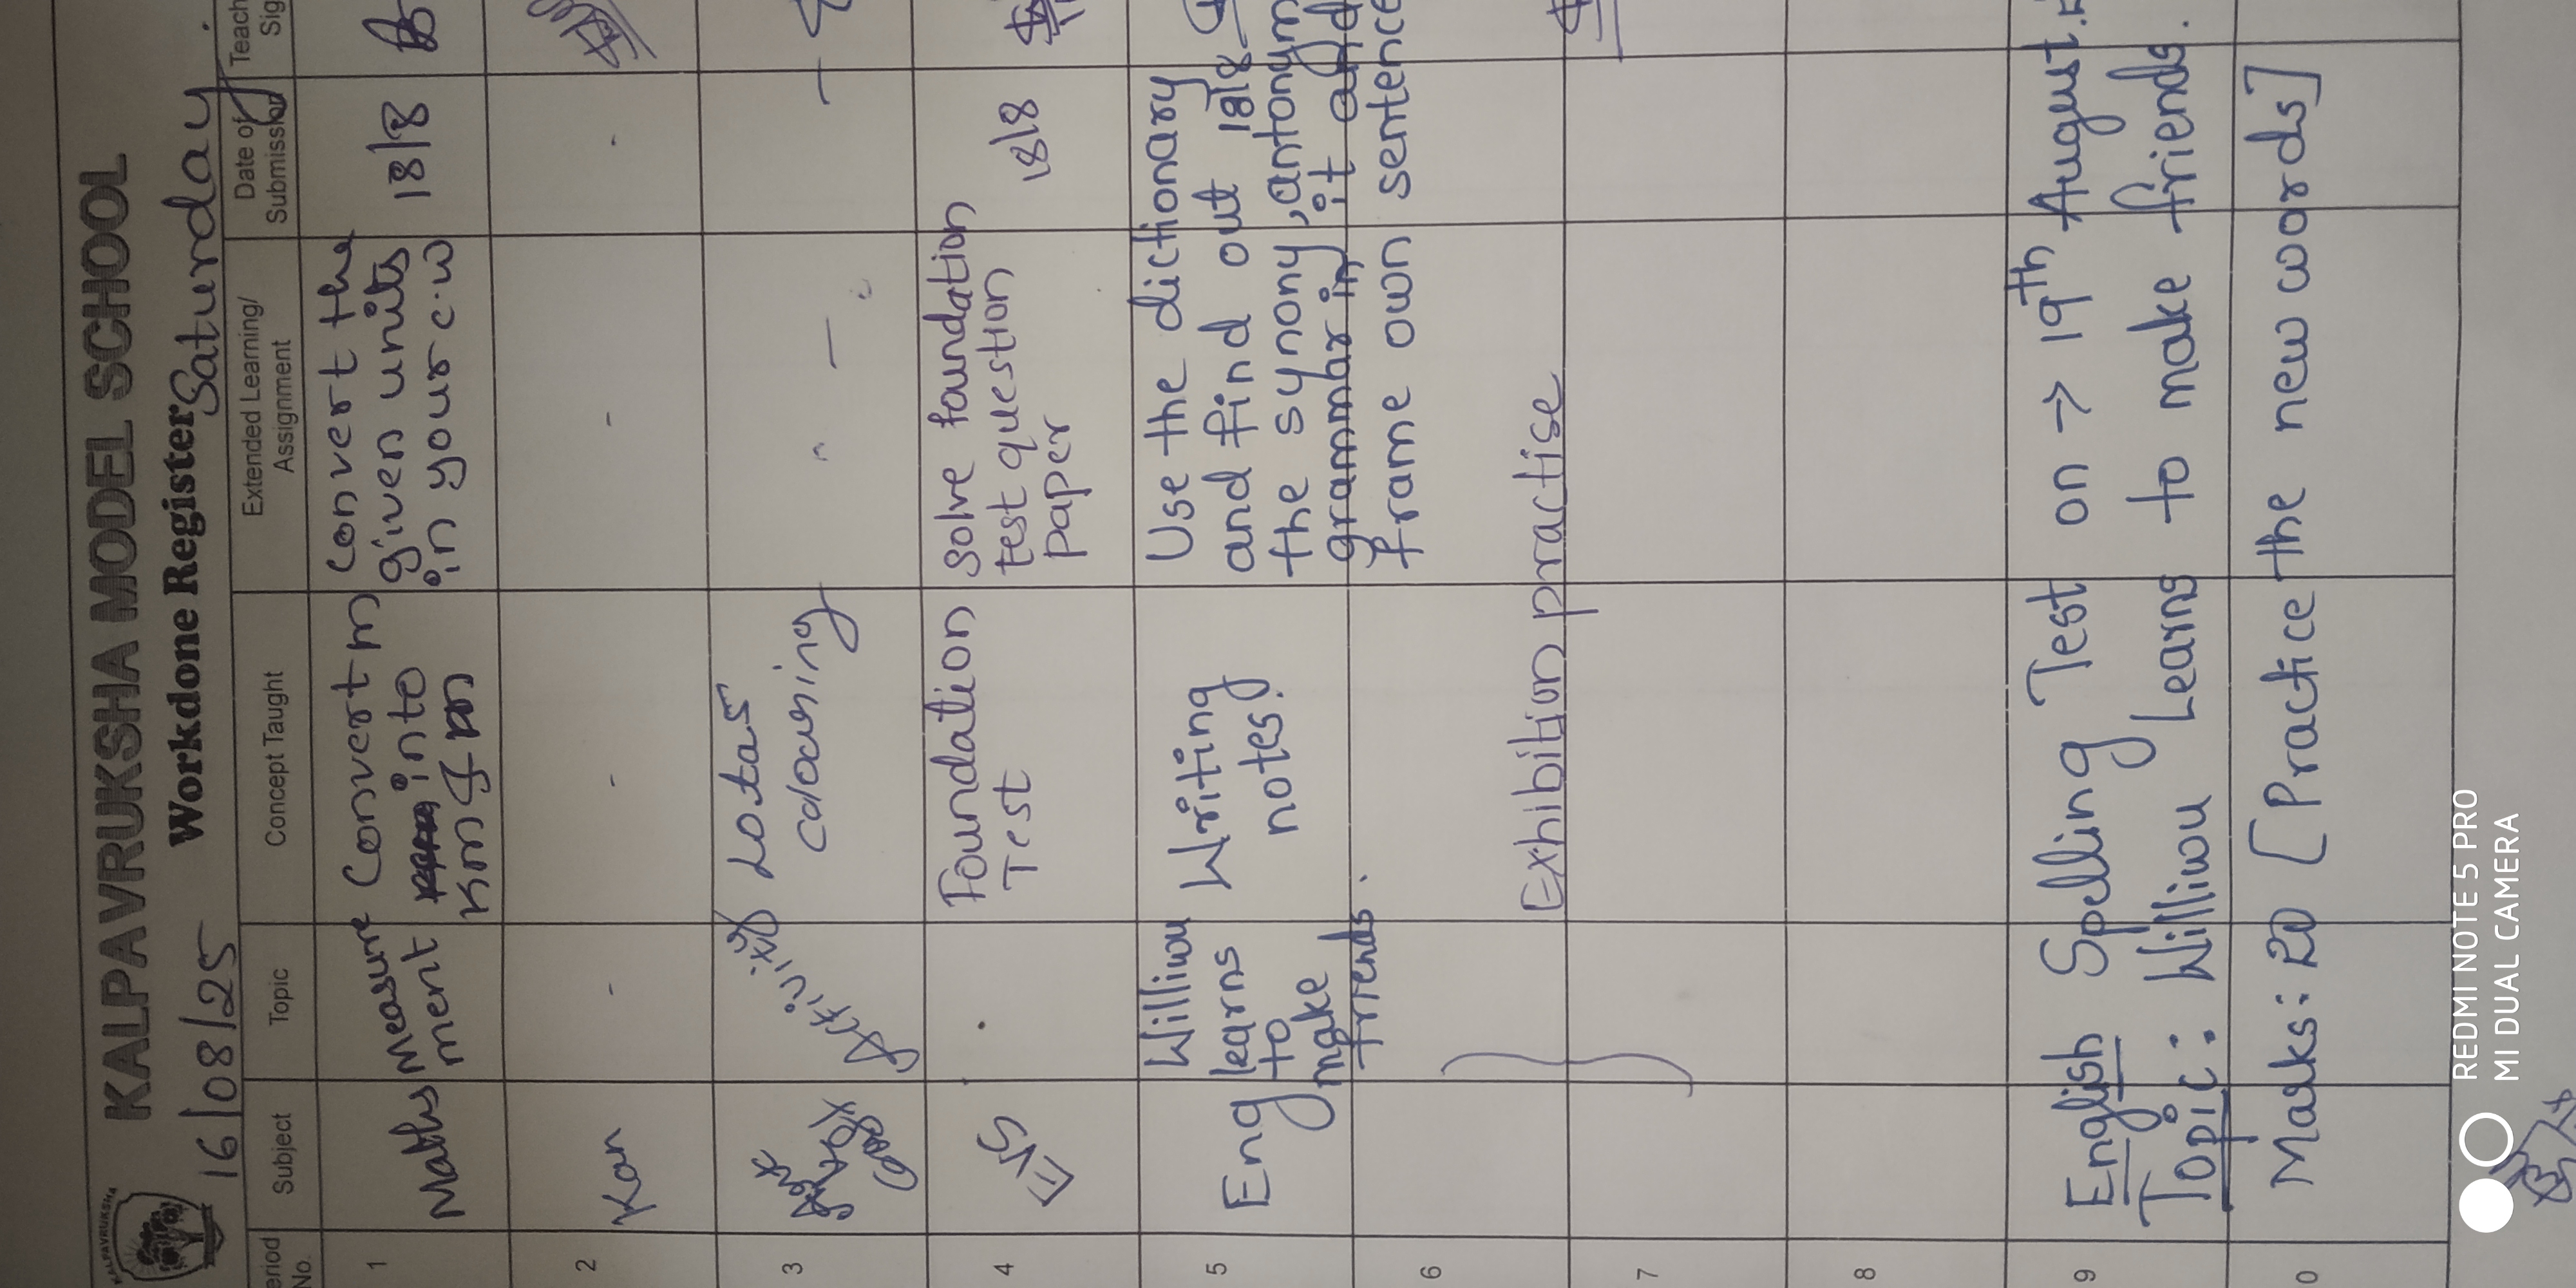 KALPAVRUKSHA
KALPAVRUKSHA MODEL SCHOOL
16/08/25 Workdone Register Saturday.
eriod No. Subject Topic Concept Taught Extended Learning/ Assignment Date of Submission Teach Sig
1 Maths Measure Convert m Convert the 18/8
ment into given units
in your c.w
2 Kan - - - -
3 Activity Lotas
colouring
4 EVS Foundation solve foundation 18/8
Test test question
paper
5 Eng Williwu Writing Use the dictionary
learns notes. and find out 18/8
to the synony, antonym
make grammar in it and
friends. frame own sentence
6 Exhibition practise
7
8
9 English Spelling Test on → 19th August.
Topic: Williwu Learns to make friends.
0 Marks: 20 [Practice the new words]
REDMI NOTE 5 PRO
MI DUAL CAMERA